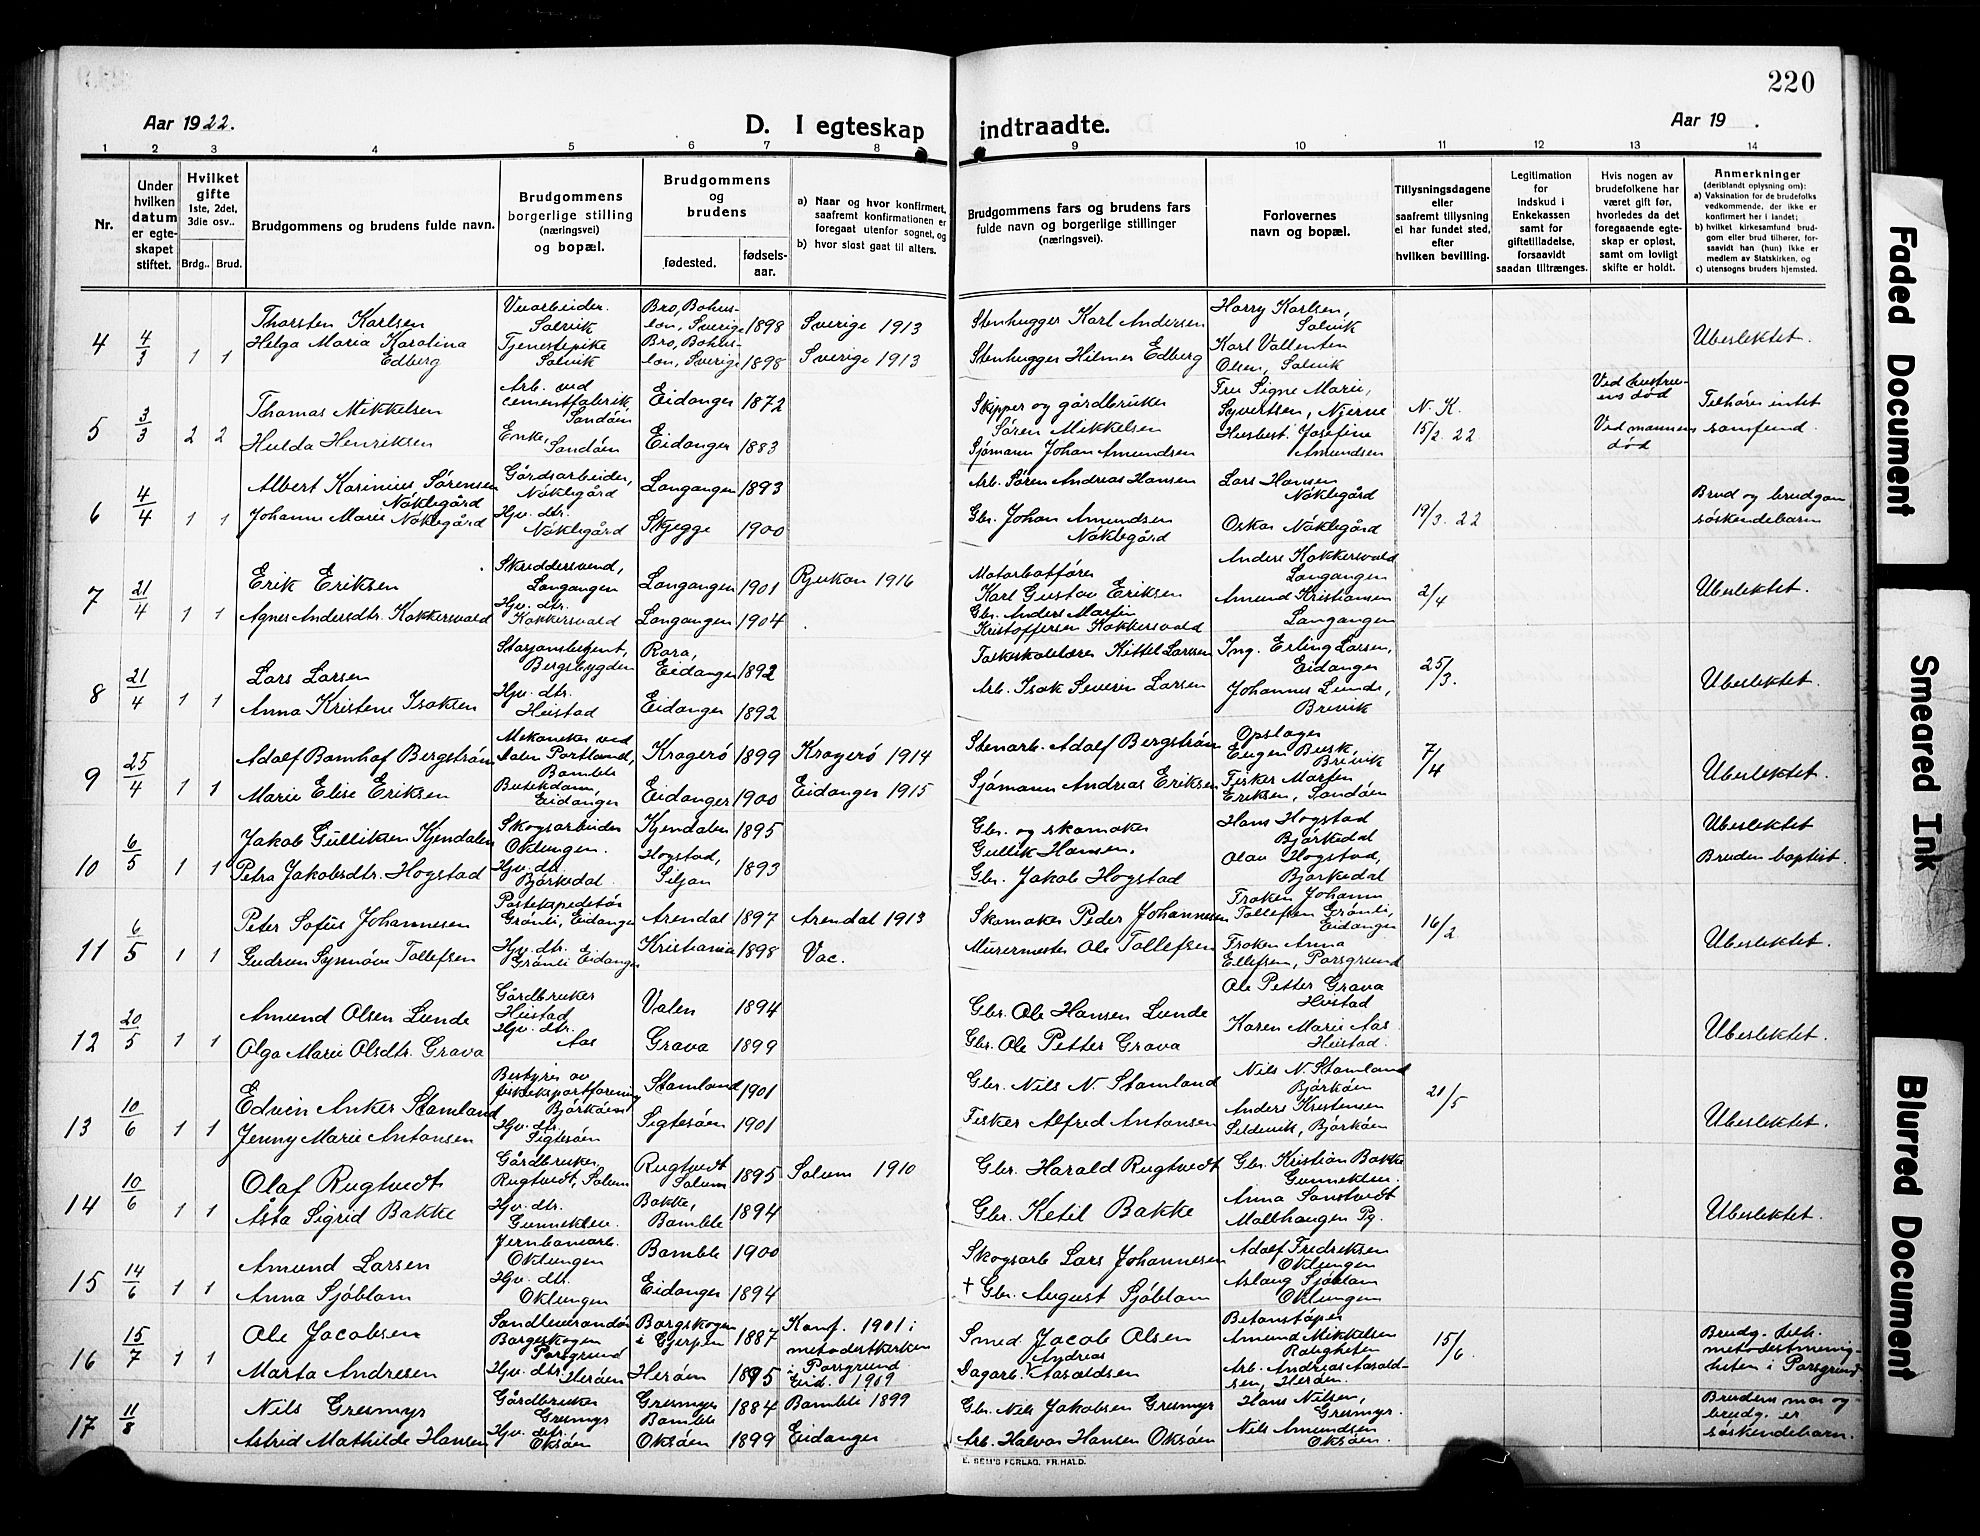 220
Aar 1922.
D. I egteskap indtraadte.
Aar 19 .
1 2 3 4 5 6 7 8 9 10 11 12 13 14
Nr.
Under hvilken datum er egte-skapet stiftet.
Hvilket gifte 1ste, 2del, 3die osv..
Brdg..
Brud.
Brudgommens og brudens fulde navn.
Brudgommens borgerlige stilling (næringsvei) og bopæl.
Brudgommens og brudens
fødested.
fødsels-aar.
a) Naar og hvor konfirmert, saafremt konfirmationen er foregaat utenfor sognet, og
b) hvor sidst gaat til alters.
Brudgommens fars og brudens fars fulde navn og borgerlige stillinger (næringsvei).
Forlovernes navn og bopæl.
Tillysningsdagene eller saafremt tillysning ei har fundet sted, efter hvilken bevilling.
Legitimation for indskud i Enkekassen samt for giftetilladelse, forsaavidt saadan tiltrænges.
Hvis nogen av brudefolkene har været gift før, hvorledes da det foregaaende egte-skap er opløst, samt om lovligt skifte er holdt.
Anmerkninger (deriblandt oplysning om):
a) Vaksination for de brudefolks vedkommende, der ikke er konfirmert her i landet;
b) hvilket kirkesamfund brud-gom eller brud tilhører, for-saavidt han (hun) ikke er medlem av Statskirken, og
c) utensogns bruders hjemsted.
4 4/3 1 1
Thorsten Karlsen
Helga Maria Karolina Edberg
Salvik
Tjenestepike Salvik
Bro, Bohus-len, Sverige 1898 Sverige 1913
Bro, Bohus-len, Sverige 1898 Sverige 1913
Stenhugger Karl Andersen
Stenhugger Hilmer Edberg
Harry Karlsen, Salvik
Karl Vallentin Olsen, Salvik
Ubeslektet.
5 3/3 2 2
Thomas Mikkelsen
Hulda Henriksen
Arb. ved cementfabrik Sandöen
Enke, Sandöen
Eidanger 1872
Eidanger 1883
Skipper og gårdbruker Sören Mikkelsen
Sjömann Johan Amundsen
Fru Signe Marie Syvertsen,
Husbest. Josefine Amundsen
N. K. 15/2. 22
Ved hustru-ens död
Ved mannens död
Tilhörer intet samfund.
6 4/4 1 1
Albert Karinius Sörensen Nöklegård
Johanne Marie Nöklegård
Gårdsarbeider, Nöklegård
Hjv. dtr. Nöklegård
Langangen 1893
Skjegge 1900
Arb. Sören Andreas Hansen
Gbr. Johan Amundsen Nöklegård
Lars Hansen Nöklegård
Oskar Nöklegård
19/3. 22
Brud og brudgom söskendebarn
7 21/4 1 1
Erik Eriksen
Agnes Andersdtr. Kokkersvold
Skreddersvend, Langangen
Hjv. dtr. Kokkersvold
Langangen 1901 Rjukan 1916
Langangen 1904
Motorbåtförer Karl Gustav Eriksen
Gbr. Anders Martin Kristoffersen Kokkersvold
Anders Kokkersvold Langangen
Amund Kristiansen Langangen
2/4
Ubeslektet.
8 21/4 1 1
Lars Larsen
Anna Kristene Isaksen
Stasjonsbetjent, Bergsbygden
Hjv. dtr. Heistad
Rora, Eidanger 1892
Eidanger 1892
Folkeskolelærer Kittel Larsen
Arb. Isak Severin Larsen
Ing. Erling Larsen, Eidanger
Johannes Lunde, Brevik
25/3.
Ubeslektet.
9 25/4 1 1
Adolf Bomhof Bergström
Marie Elise Eriksen
Mekaniker ved Dalen Portland, Bamble
Buekdam, Eidanger
Kragerö 1899 Kragerö 1914
Eidanger 1900 Eidanger 1915
Stenarb. Adolf Bergström
Sjömann Andreas Eriksen
Opslager Eugen Busk, Brevik
Fisker Martin Eriksen, Sandöen
7/4
Ubeslektet.
10 6/5 1 1
Jakob Gulliksen Kjendalen
Petra Jakobsdtr. Hogstad
Skogsarbeider Oklungen.
Hjv. dtr. Bjørkedal.
Kjendalen 1895
Hogstad, Siljan 1893
Gbr. og skomaker Gullik Hansen.
Gbr. Jakob Hogstad
Hans Hogstad Bjørkedal
Olav Hogstad, Bjørkedal
Ubeslektet
Bruden baptist.
11 6/5 1 1
Peter Sofus Johannesen
Gudrun Synnöve Tollefsen
Postekspeditör Grönli, Eidanger
Hjv. dtr. Grönli Eidanger
Arendal 1897 Arendal 1913
Kristiania 1898 Vac.
Skomaker Peder Johannesen
Murermester Ole Tollefsen
Fröken Johanne Tollefsen Grönli, Eidanger
Fröken Anna Ellefsen, Porsgrund
16/2
Ubeslektet.
12 20/5 1 1
Amund Olsen Lunde
Olga Marie Olsdtr. Grava
Gårdbruker Heistad
Hjv. dtr. Aas
Valen 1894
Grava 1899
Gbr. Ole Hansen Lunde
Gbr. Ole Petter Grava
Ole Petter Grava Heistad
Karen Marie Aas. Heistad.
Ubeslektet.
13 10/6 1 1
Edvin Anker Stamland
Jenny Marie Antonsen
Bestyrer av fiskeksportforening Björköen
Hjv. dtr. Sigtesöen
Stamland 1901
Sigtesöen 1901
Gbr. Nils N. Stamland
Fisker Alfred Antonsen
Nils N. Stamland Björköen
Anders Kristensen Sildevik, Björköen
21/5
Ubeslektet.
14 10/6 1 1
Olaf Rugtvedt
Åsta Sigrid Bakke
Gårdbruker, Rugtvedt, Solum
Hjv. dtr. Gunneklev.
Rugtvedt Solum 1895 Solum 1910
Bakke, Bamble 1894
Gbr. Harald Rugtvedt
Gbr. Ketil Bakke
Gbr. Kristian Bakke Gunneklev.
Anna Sanstvedt Mollhaugen Pg.
Ubeslektet.
15 14/6 1 1
Amund Larsen
Anna Sjöblom
Jernbanearb. Oklungen
Hjv. dtr. Oklungen
Bamble 1900
Eidanger 1894
Skogsarb Lars Johannesen
† Gbr. August Sjöblom
Adolf Fredriksen Oklungen
Aslaug Sjöblom Oklungen
16 15/7 1 1
Ole Jacobsen
Marta Andresen
Sandleverandör Borgeskogen Porsgrund
Hjv. dtr. Heröen
Borgskogen i Gjerpen 1887 Konf. 1901 i metodistkirken i Porsgrund
Heröen 1895 Eid. 1909
Smed Jacob Olsen
Dagarb. Andreas Aaroldsen
Betonstöper Amund Mikkelsen Raligheten
Arb. Andreas Aarold-sen, Heröen.
15/6.
Brudg. tilh. metodistmenig-heten i Porsgrund
17 11/8
Nils Gresmyr
Astrid Mathilde Hansen
Gårdbruker Gresmyr
Hjv. dtr. Oksöen
Gresmyr Bamble 1884 Bamble 1899
Oksöen 1899 Eidanger
Gbr. Nils Jakobsen Gresmyr
Arb. Halvor Hansen Oksöen
Hans Nilsen, Gresmyr.
Nils Amundsen Oksöen.
Brudens mor og brudg. er söskendebarn.
E. SEM'S FORLAG. FR.HALD.
Faded Document
Smeared Ink
Blurred Document